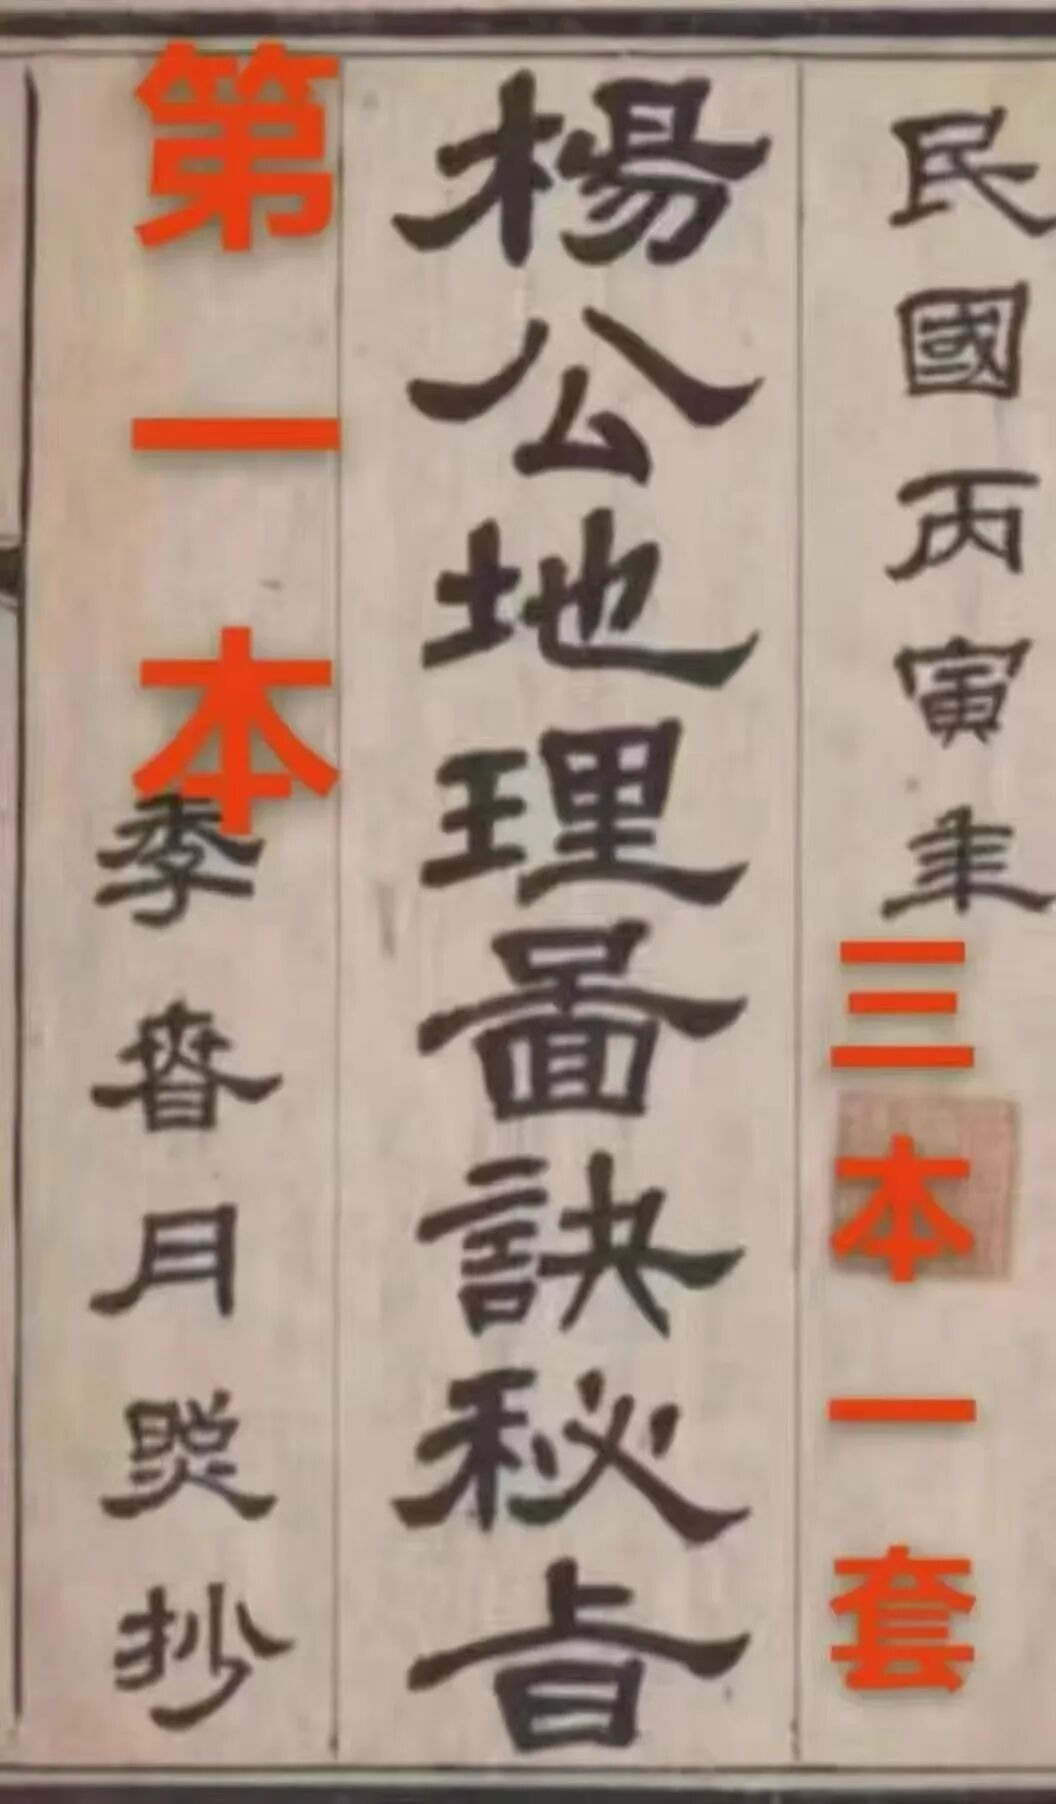 民國丙寅年
三本一套
楊公地理圖訣秘旨
第一本
季春月照抄